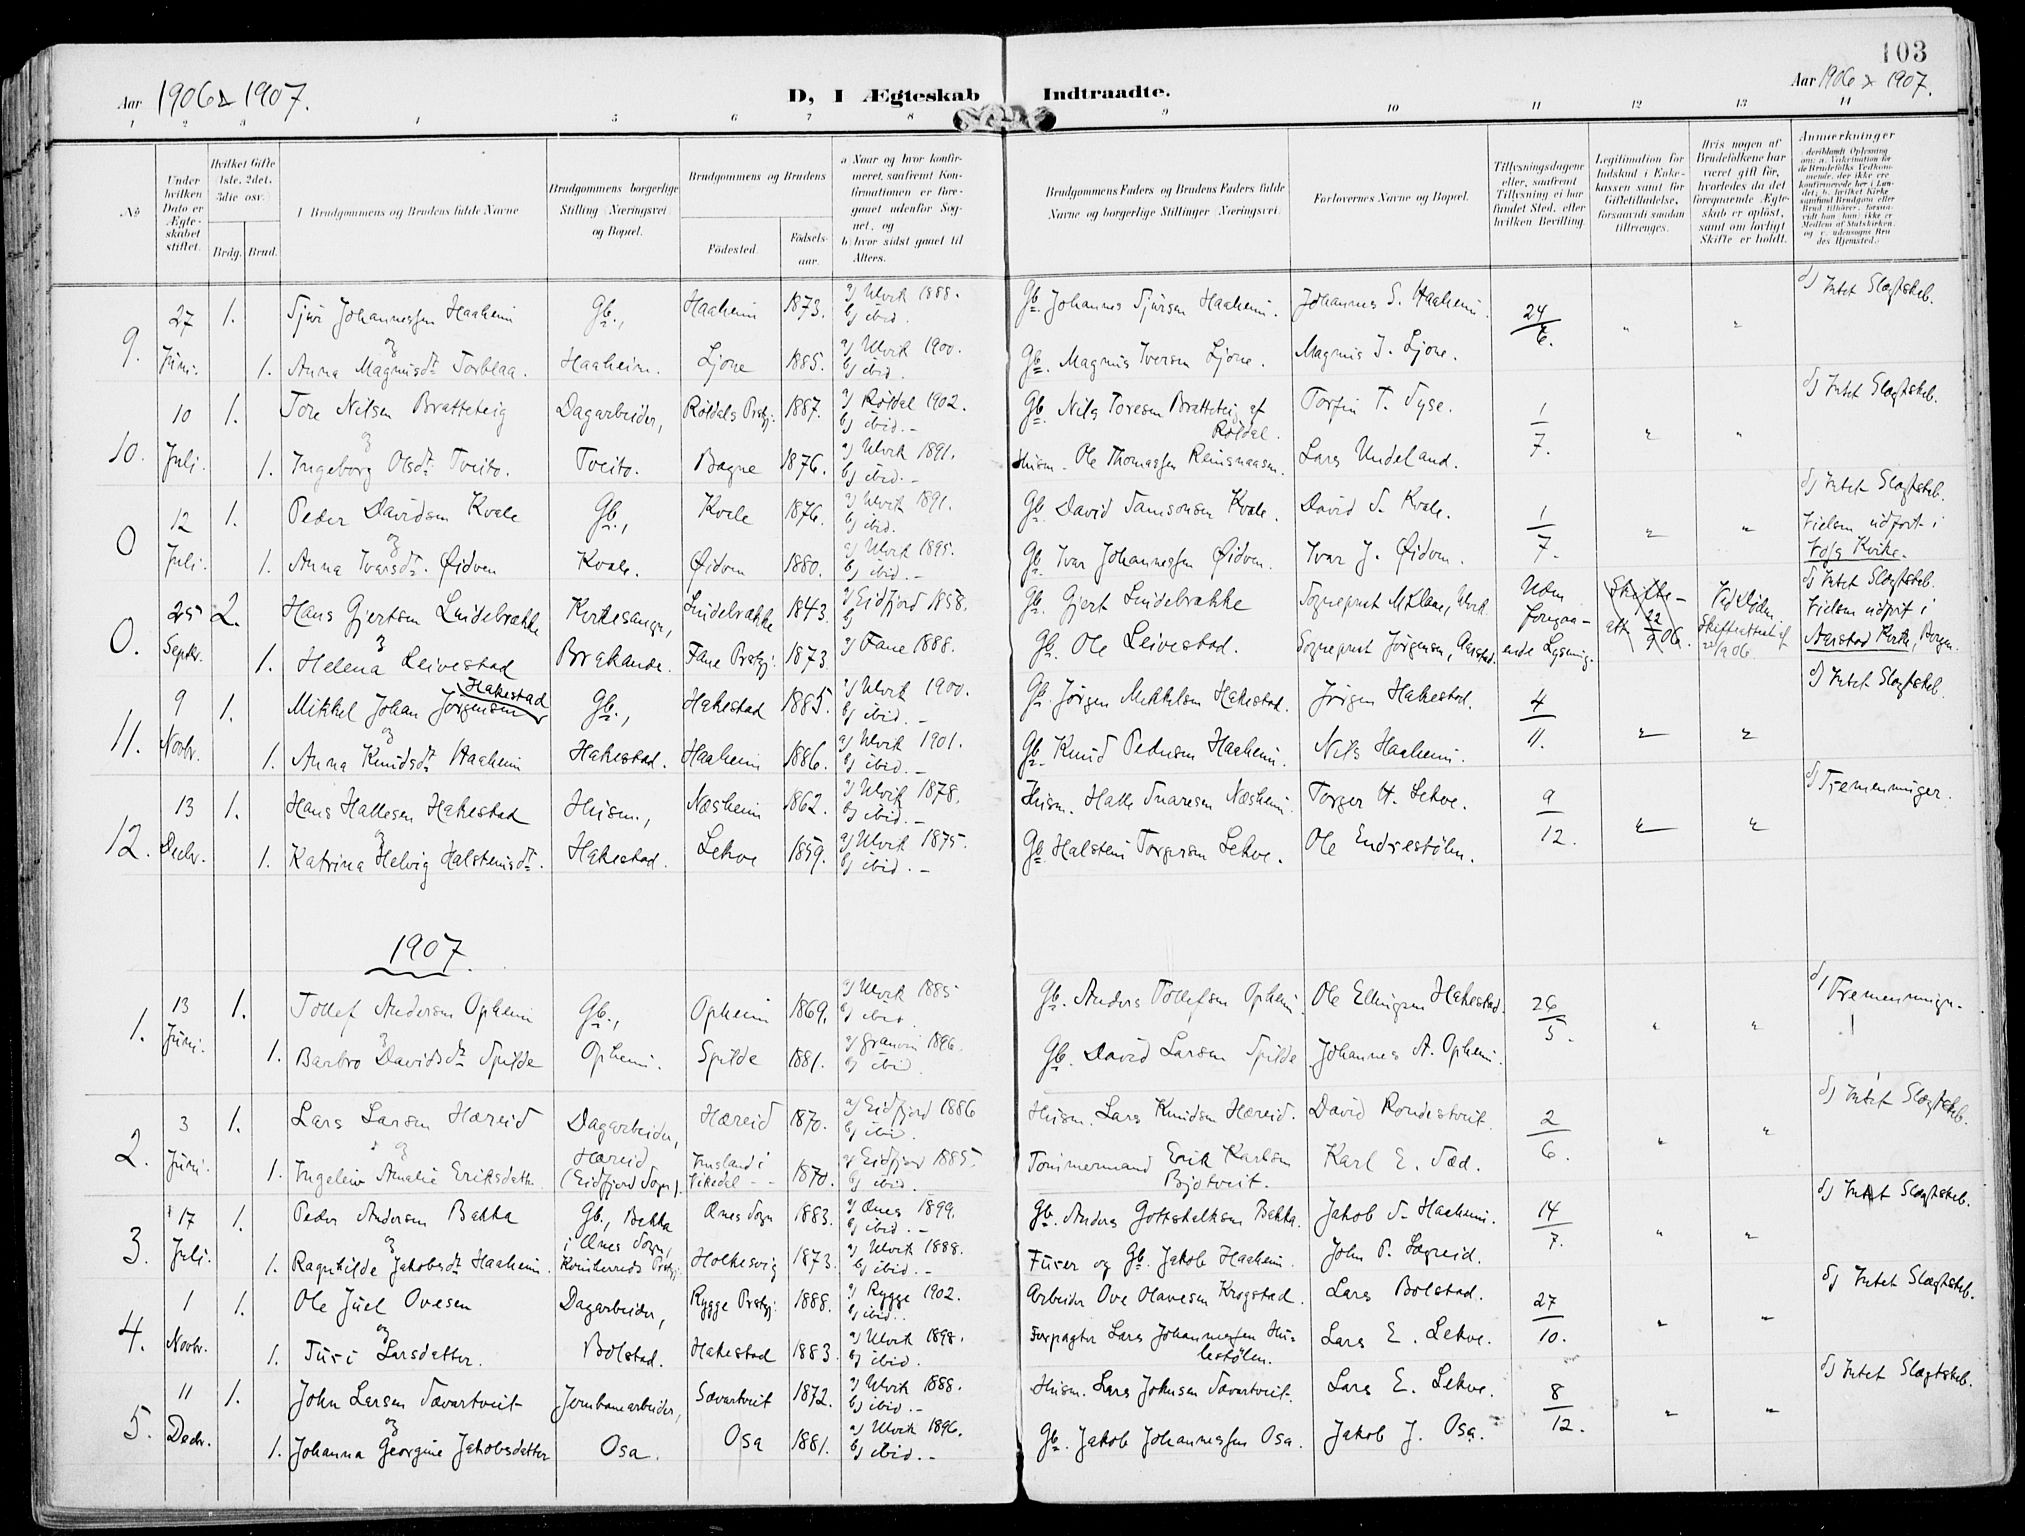 103
Aar 1906 & 1907.
D, I Ægteskab Indtraadte.
Aar 1906 & 1907.
1 2 3 4 5 6 7 8 9 10 11 12 13 14
No
Under hvilken Dato er Ægteskabet stiftet.
Hvilket Gifte 1ste, 2det, 3die osv.
Brdg. Brud.
I Brudgommens og Brudens fulde Navne
Brudgommens borgerlige Stilling (Næringsvei) og Bopæl.
Brudgommens og Brudens
Fødested.
Fødselsaar.
a Naar og hvor konfirmeret, saafremt Konfirmationen er foregaaet udenfor Sognet, og
b) hvor sidst gaaet til Alters.
Brudgommens Faders og Brudens Faders fulde Navne og borgerlige Stillinger (Næringsvei)
Forlovernes Navne og Bopæl.
Tillysningsdagene eller, saafremt Tillysning ei har fundet Sted, efter hvilken Bevilling.
Legitimation for Indskud i Enkekassen samt for Giftetilladelse, forsaavidt saadan tiltrænges.
Hvis nogen af Brudefolkene har været gift før, hvorledes da det foregaaende Ægteskab er opløst, samt om lovligt Skifte er holdt.
Anmerkninger
9. 27 Juni. 1. Sjur Johannessen Haaheim Gb., Haaheim 1873. a) Ulvik 1888. b) ibid. Gb. Johannes Sjursen Haaheim. Johannes S. Haaheim. 24/6. " " d) Intet Slægtskb.
og
1. Anna Magnusdtr Torblaa. Haaheim. Ljone 1885. a) Ulvik 1900. b) ibid. Gb. Magnus Iversen Ljone. Magnus I. Ljone.
10. 10 Juli. 1. Tore Nilsen Bratteteig Dagarbeider, Røldals Prstgj. 1887. a) Røldal 1902. b) ibid.- Gb. Nils Toresen Bratteteig af Røldal. Torfin T. Syse. 1/7. " " d) Intet Slægtskb.
og
1. Ingeborg Olsdtr Tveito. Tveito. Bagne 1876. a) Ulvik 1891. b) ibid.- Husm. Ole Thomassen Reinsnaasen. Lars Undeland.
0 12 Juli. 1. Peder Davidsen Kvale Gb., Kvale 1876. a) Ulvik 1891. b) ibid. Gb. David Samsonsen Kvale. David S. Kvale. 1/7. " " d) Intet Slægtskb.
og
1. Anna Ivarsdtr. Øidven Kvale. Øidven 1880. a) Ulvik 1895. b) ibid.- Gb. Ivar Johannessen Øidven. Ivar J. Øidven. Vielsen udført i Voss Kirke.
0. 25 Septbr. 2. Hans Gjertsen Lindebrække Kirkesanger, Lindebrække 1843. a) Eidfjord 1858. b) Gb. Gjert Lindebrække Sogneprest M Klaae, Ulvik Uden foregaaende Lysning. Skifteatt 22/9 06. Ved Døden Skifteattest af 22/9 06. d) Intet Slægtskb. Vielsen udført i Aarstad Kirke, Bergen.
og
1. Helena Leivestad Brakanes. Fane Prstgj. 1873. a) Fane 1888. Gb. Ole Leivestad. Sogneprest Jørgensen, Aarstad.
11. 9 Novbr. 1. Mikkel Johan Jørgensen Hakestad Gb., Hakestad 1885. a) Ulvik 1900. b) ibid.- Gb. Jørgen Mikkelsen Hakestad. Jørgen Hakestad. 4/11. " " d) Intet Slægtskb.
og
1. Anna Knudsdtr Haaheim Hakestad. Haaheim 1886. a) Ulvik 1901. b) ibid.- Gb. Knud Pedersen Haaheim. Nils Haaheim.
12. 13 Decbr. 1. Hans Hallesen Hakestad Husm., Næsheim 1862. a) Ulvik 1878. b) ibid.- Husm. Halle Snaresen Næsheim. Torger H. Lekve. 9/12. " " d) Tremenninger.
og
1. Katrina Helvig Halsteinsdtr. Hakestad. Lekve 1859. a) Ulvik 1875. b) ibid.- Gb. Halstein Torgersen Lekve. Ole Endrestølen.
1907.
1. 13 Juni. 1. Tollef Andersen Opheim Gb., Opheim 1869. a) Ulvik 1885 b) ibid. Gb. Anders Tollefsen Opheim. Ole Ellingsen Hakestad. 26/5. " " d) Tremenninger.
og
1. Barbro Davidsdtr Spilde Opheim. Spilde 1881. a) Granvin 1896. b) ibid. Gb. David Larsen Spilde Johannes A. Opheim.
2. 3 Juni. 1. Lars Larsen Hæreid Dagarbeider, Hæreid 1870. a) Eidfjord 1886 b) ibid. Husm. Lars Knudsen Hæreid. David Rondestveit. 2/6. " " d) Intet Slægtskb.
og
1. Ingeleiv Amalie Eriksdatter Hæreid (Eidfjord Sogn). Imsland i Vikedal 1870. a) Eidfjord 1885. b) ibid. Tømmermand Erik Karlsen Bjotveit. Karl E. Sæd.
3. 17 Juli. 1. Peder Andersen Bakka Gb., Bakka i Ænes Sogn, Kvinherreds Prstgj. Ænes Sogn 1883. a) Ænes 1899. b) ibid.- Gb. Anders Gottskalksen Bakka. Jakob S. Haaheim. 14/7. " " d) Intet Slægtskb.
og
1. Ragnhilde Jakobsdtr Haaheim. Holkesvig 1873. a) Ulvik 1888. b) ibid.- Furer og Gb. Jakob Haaheim. John P. Lægreid.
4. 1 Novbr. 1. Ole Juel Ovesen Dagarbeider, Rygge Prstgj. 1888. a) Rygge 1902. b) ibid. Arbeider Ove Olavesen Krogstad. Lars Bolstad. 27/10. " " d) Intet Slægtskb.
og
1. Turi Larsdatter. Bolstad. Hakestad 1883. a) Ulvik 1898. b) ibid. Forpagter Lars Johannessen Hulestølen. Lars E. Lekve.
5. 11 Decbr. 1. John Larsen Sævartveit Jernbanearbeider, Sævartveit 1872. a) Ulvik 1888. b) ibid.- Husm. Lars Johnsen Sævartveit. Lars E. Lekve. 8/12. " " d) Intet Slægtskb.
og
1. Johanna Georgine Jakobsdatter Osa. Osa 1881. a) Ulvik 1896. b) ibid.- Gb. Jakob Johannessen Osa. Jakob J. Osa.